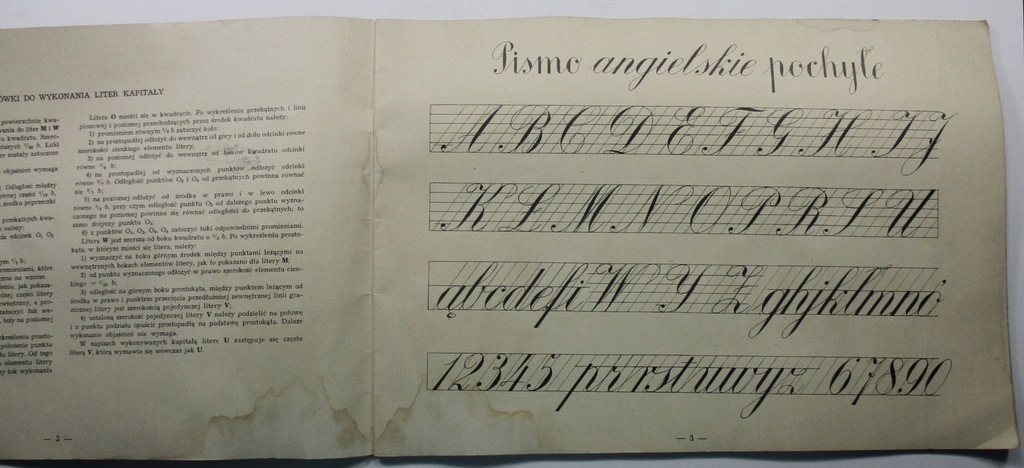 ÓWKI DO WYKONANIA LITER KAPITAŁY
powierzchnię kwa-
wania do liter M i W
kwadratu. Szero-
b. Łuki
zostały zatoczone
objaśnień wymaga
Odległość między
górnej części
środku poprzeczki
przekątnych kwa-
należy:
odcinek O₁ O₂
promieniami, które
na wzorze.
jak pokaza-
części litery
zewnętrzny, a pro-
zatoczyć łuk we-
leży na poziomej
wykreśleniu prosto-
położenie punktu
litery. Od tego
elementu litery
tok wykonania
Litera O mieści się w kwadracie. Po wykreśleniu przekątnych i linii
pionowej i poziomej przechodzących przez środek kwadratu należy:
1) promieniem równym b zatoczyć koło;
2) na prostopadłej odłożyć do wewnątrz od góry i od dołu odcinki równe
szerokości cienkiego elementu litery;
3) na poziomej odłożyć do wewnątrz od boków kwadratu odcinki
równe b;
4) na prostopadłej od wyznaczonych punktów odłożyć odcinki
równe b. Odległość punktów O₃ i O₄ od przekątnych powinna równać
się b;
5) na poziomej odłożyć od środka w prawo i w lewo odcinki
równe b, przy czym odległość punktu O₂ od dalszego punktu wyzna-
czonego na poziomej powinna się równać odległości do przekątnych; to
samo dotyczy punktu O₁;
6) z punktów O₁, O₂, O₃, O₄ zatoczyć łuki odpowiednimi promieniami.
Litera W jest szersza od boku kwadratu o b. Po wykreśleniu prosto-
kąta, w którym mieści się litera, należy:
1) wyznaczyć na boku górnym środek między punktami leżącymi na
wewnętrznych bokach elementów litery, jak to pokazano dla litery M;
2) od punktu wyznaczonego odłożyć w prawo szerokość elementu cien-
kiego = b;
3) odległość na górnym boku prostokąta, między punktem leżącym od
środka w prawo i punktem przecięcia przedłużonej zewnętrznej linii gra-
nicznej litery jest szerokością pojedynczej litery V;
4) ustaloną szerokość pojedynczej litery V należy podzielić na połowę
i z punktu podziału opuścić prostopadłą na podstawę prostokąta. Dalsze
wykonanie objaśnień nie wymaga.
W napisach wykonywanych kapitałą literę U zastępuje się często
literą V, którą wymawia się wówczas jak U.
— 2 —
Pismo angielskie pochyłe
A B C D E F G H I J
K Ł M N O P R S U
ąbcdefi W Y Z ghjkłmnó
12345 prrstuwyz 67890
— 3 —